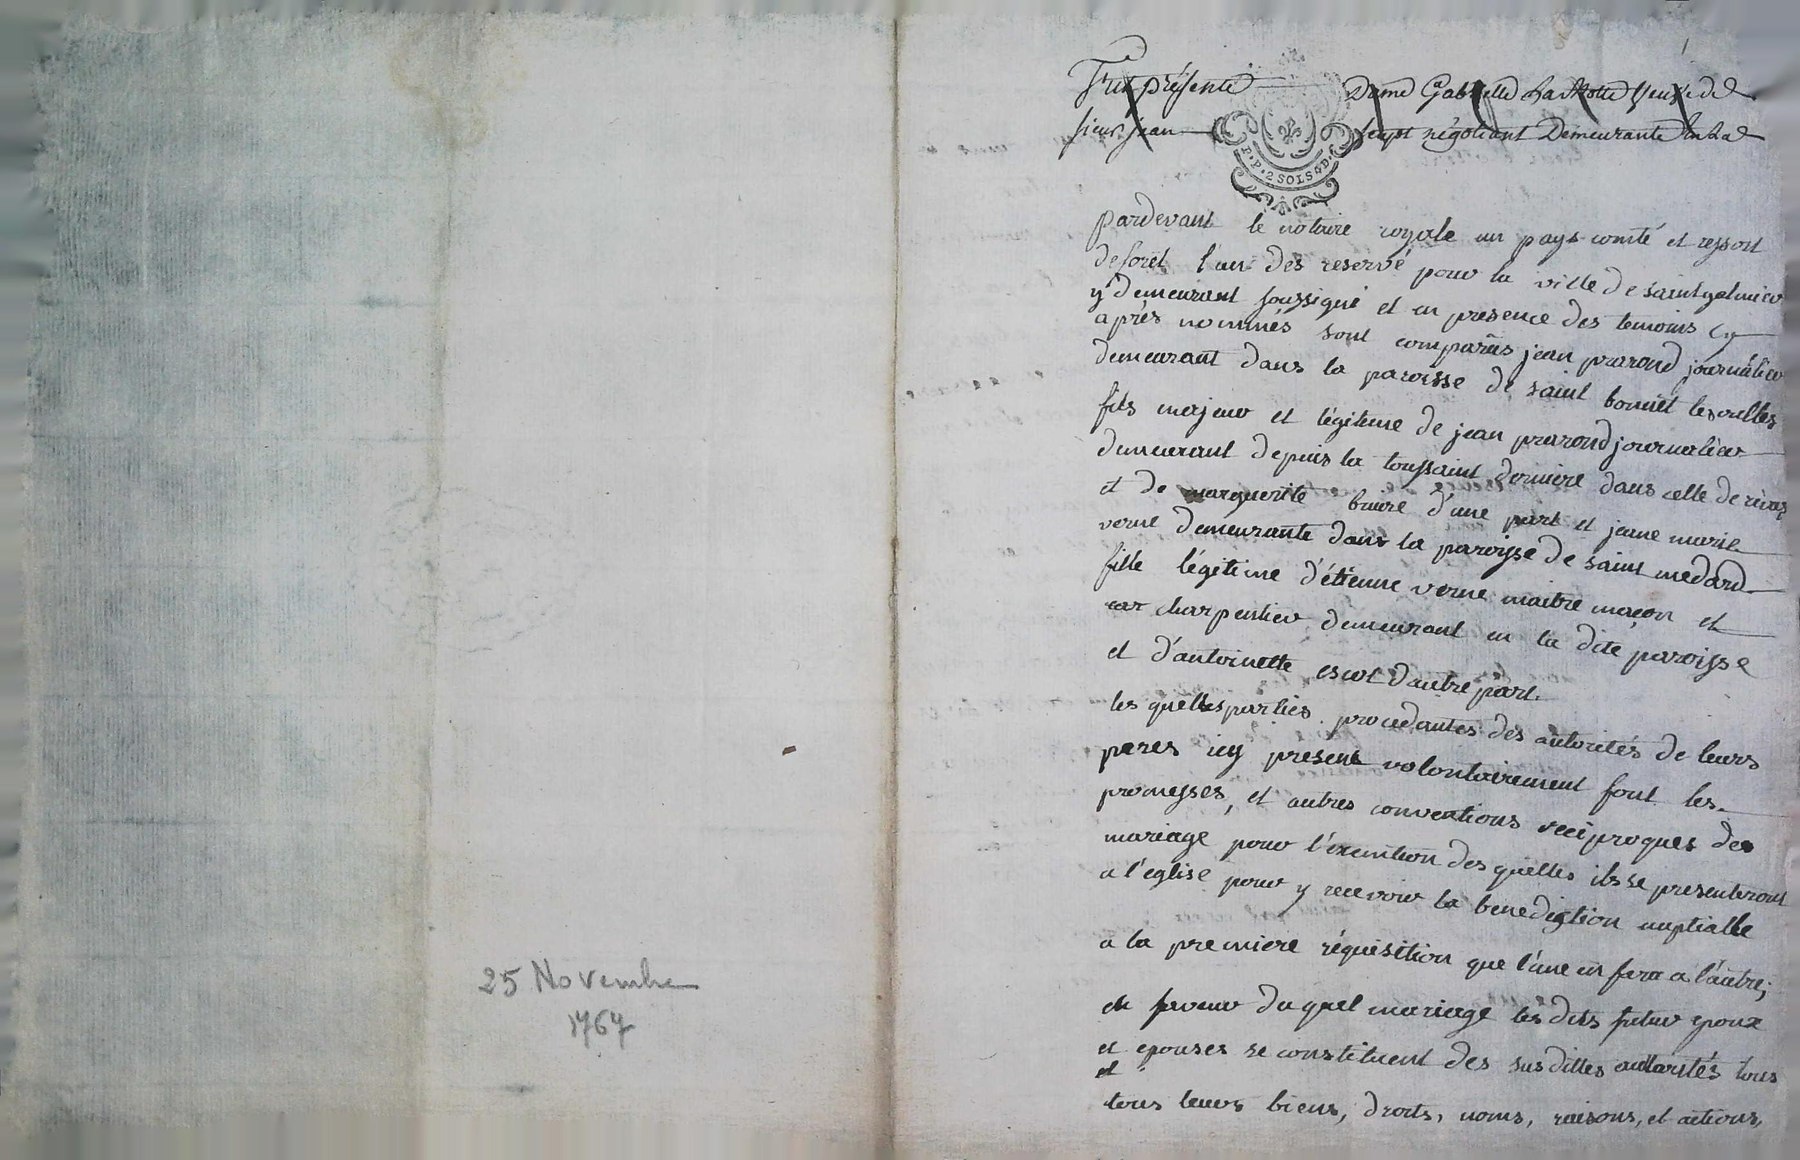 25 Novembre
1767
Fut présente Dame Gabrielle La Motte veuve de
sieur Jean négotiant Demeurante En La
P.P. 2 SOLS 4 D.
pardevant le notaire royale au pays comté et ressort
de forêt l'un des reservé pour la ville de saint galmier
y demeurant soussigné et en presence des temoins cy
après nommés sont comparus jean prarond journalier
demeurant dans la paroisse de saint bonnet les oulles
fils majeur et légitime de jean prarond journalier
demeurant depuis la toussaint derniere dans celle de rivas
et de marguerite d'une part et jeane marie
verne demeurante dans la paroisse de saint medard
fille légitime d'étienne verne maitre maçon et
charpentier demeurant en la dite paroisse
et d'antoinette escot d'autre part.
les quelles parties procedantes des autorités de leurs
peres icy present volontairement font les
promesses, et autres conventions reciproques de
mariage pour l'execution des quelles ils se presenteront
a l'eglise pour y recevoir la benediction nuptialle
a la premiere réquisition que l'une en fera a l'autre;
en faveur du quel mariage les dits futur epoux
et epouses se constituent des susdittes authorités tous
et
tous leurs biens, droits, noms, raisons, et actions,